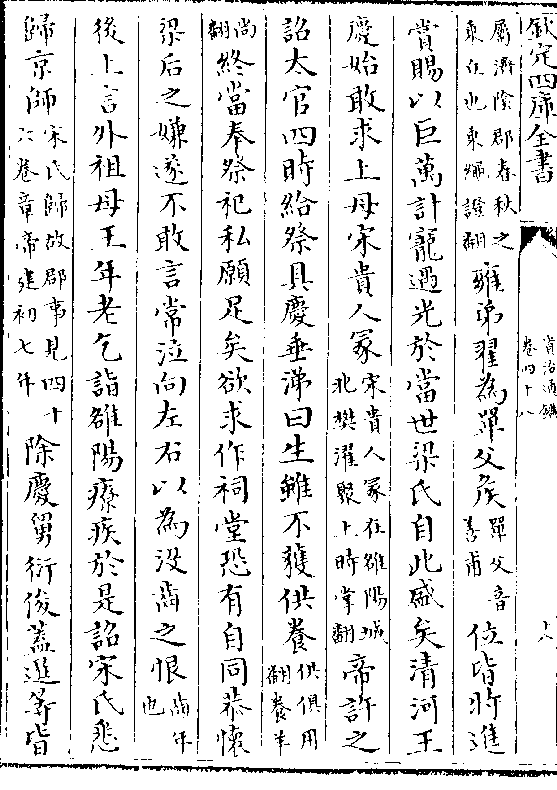 欽定四庫全書
資治通鑑
卷四十八
屬濟隂郡春秋之
乘丘也乘䋲證翻雍弟翟為單父侯單父音
善甫位皆特進
賞賜以巨萬計寵遇光於當世梁氏自此盛矣清河王
慶始敢求上母宋貴人冢宋貴人冢在雒陽城
北樊濯聚上時掌翻帝許之
詔太官四時給祭具慶垂涕曰生雖不獲供養供俱用
翻養羊
尚
翻終當奉祭祀私願足矣欲求作祠堂恐有自同恭懷
梁后之嫌遂不敢言常泣向左右以為没齒之恨齒年
也
後上言外祖母王年老乞詣雒陽療疾於是詔宋氏悉
歸京師宋氏歸故郡事見四十
六卷章帝建初七年除慶舅衍俊蓋暹等皆